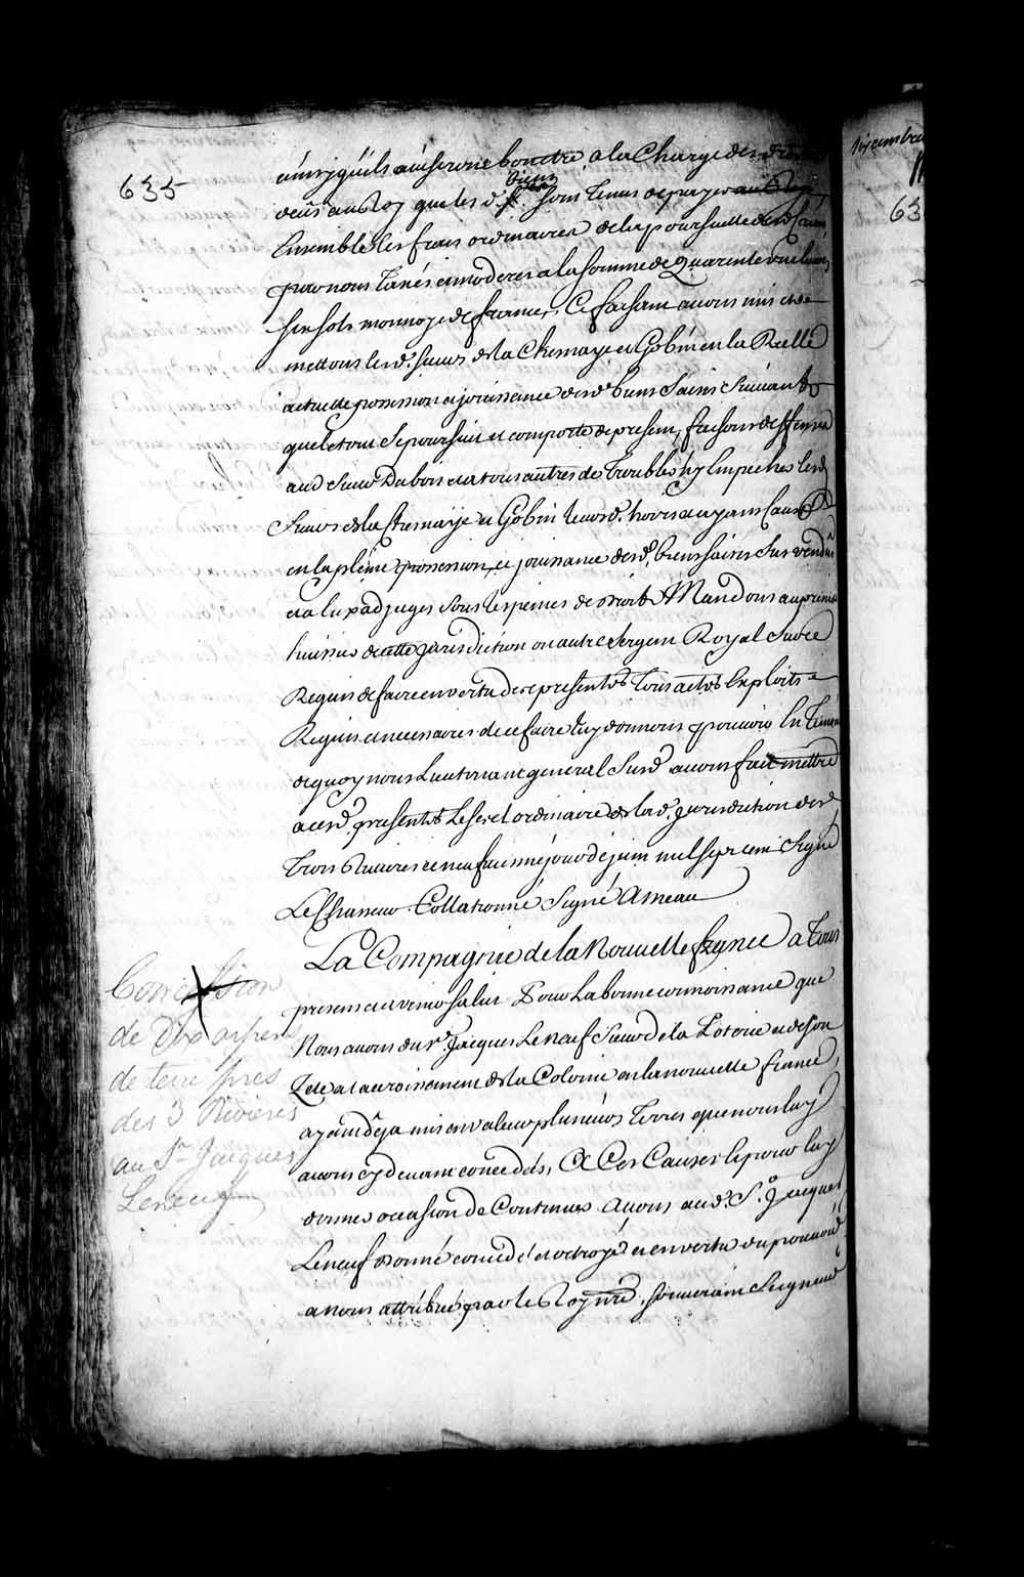 635
ainsy qu'ils aviseront bon etre, a la Charge des droits
deus au Roy que les d. biens sont tenus de payer
Ensemble les frais ordinaires de la poursuitte des d. Criées
par nous taxés et moderés a la somme de Quarente
six sols monnoye de france, Ce faisant avons mis et
mettons les d. sieurs de la Chesnaye et Gobin en la Reelle
actuelle possession et jouissance des d. biens saisis suivant
que le tout se poursuit et comporte de present, faisons deffense
aud Sieur Dubois et a tous autres de troubles ny Empeches les d
Sieurs de la Chesnaye et Gobin leurs d. hoirs et ayans Cause
en la pleine possession et jouissance des d. biens saisis sur vendus
et a lux adjuges sous les peines de droit Mandons au premier
huissier de cette jurisdiction ou autre sergent Royal sur ce
Requis de faire en vertu des presentes tous actes Exploits
Requis et necessaires de ce faire luy donnons pouvoir En temoin
de quoy nous Lieutenant general susd avons fait mettre
a ces d. presentes le scel ordinaire de lad. jurisdiction
trois Rivieres ce neufvieme jour de juin mil sept cent Signé
Le Chasseur Collationné Signé Ameau
La Compagnie de la Nouvelle france a tous
presens et a venir salut Pour la bonne connoissance que
Nous avons du Sr. Jacques Leneuf Sieur de la Poterie et de son
Zele a l'acroissement de la Colonie en la nouvelle france,
ayant deja mis en valeur plusieurs terres que nous luy
avons cy devant concedés, A Ces Causes & pour luy
donner occasion de Continuer Avons aud. Sr. Jacques
Leneuf donné concedé et octroyé et en vertu du pouvoir
a nous attribué par le Roy nre. souverain Seigneur
Concession
de Dix arpens
de terre près
des 3 Rivieres
au Sr Jacques
Leneuf
63